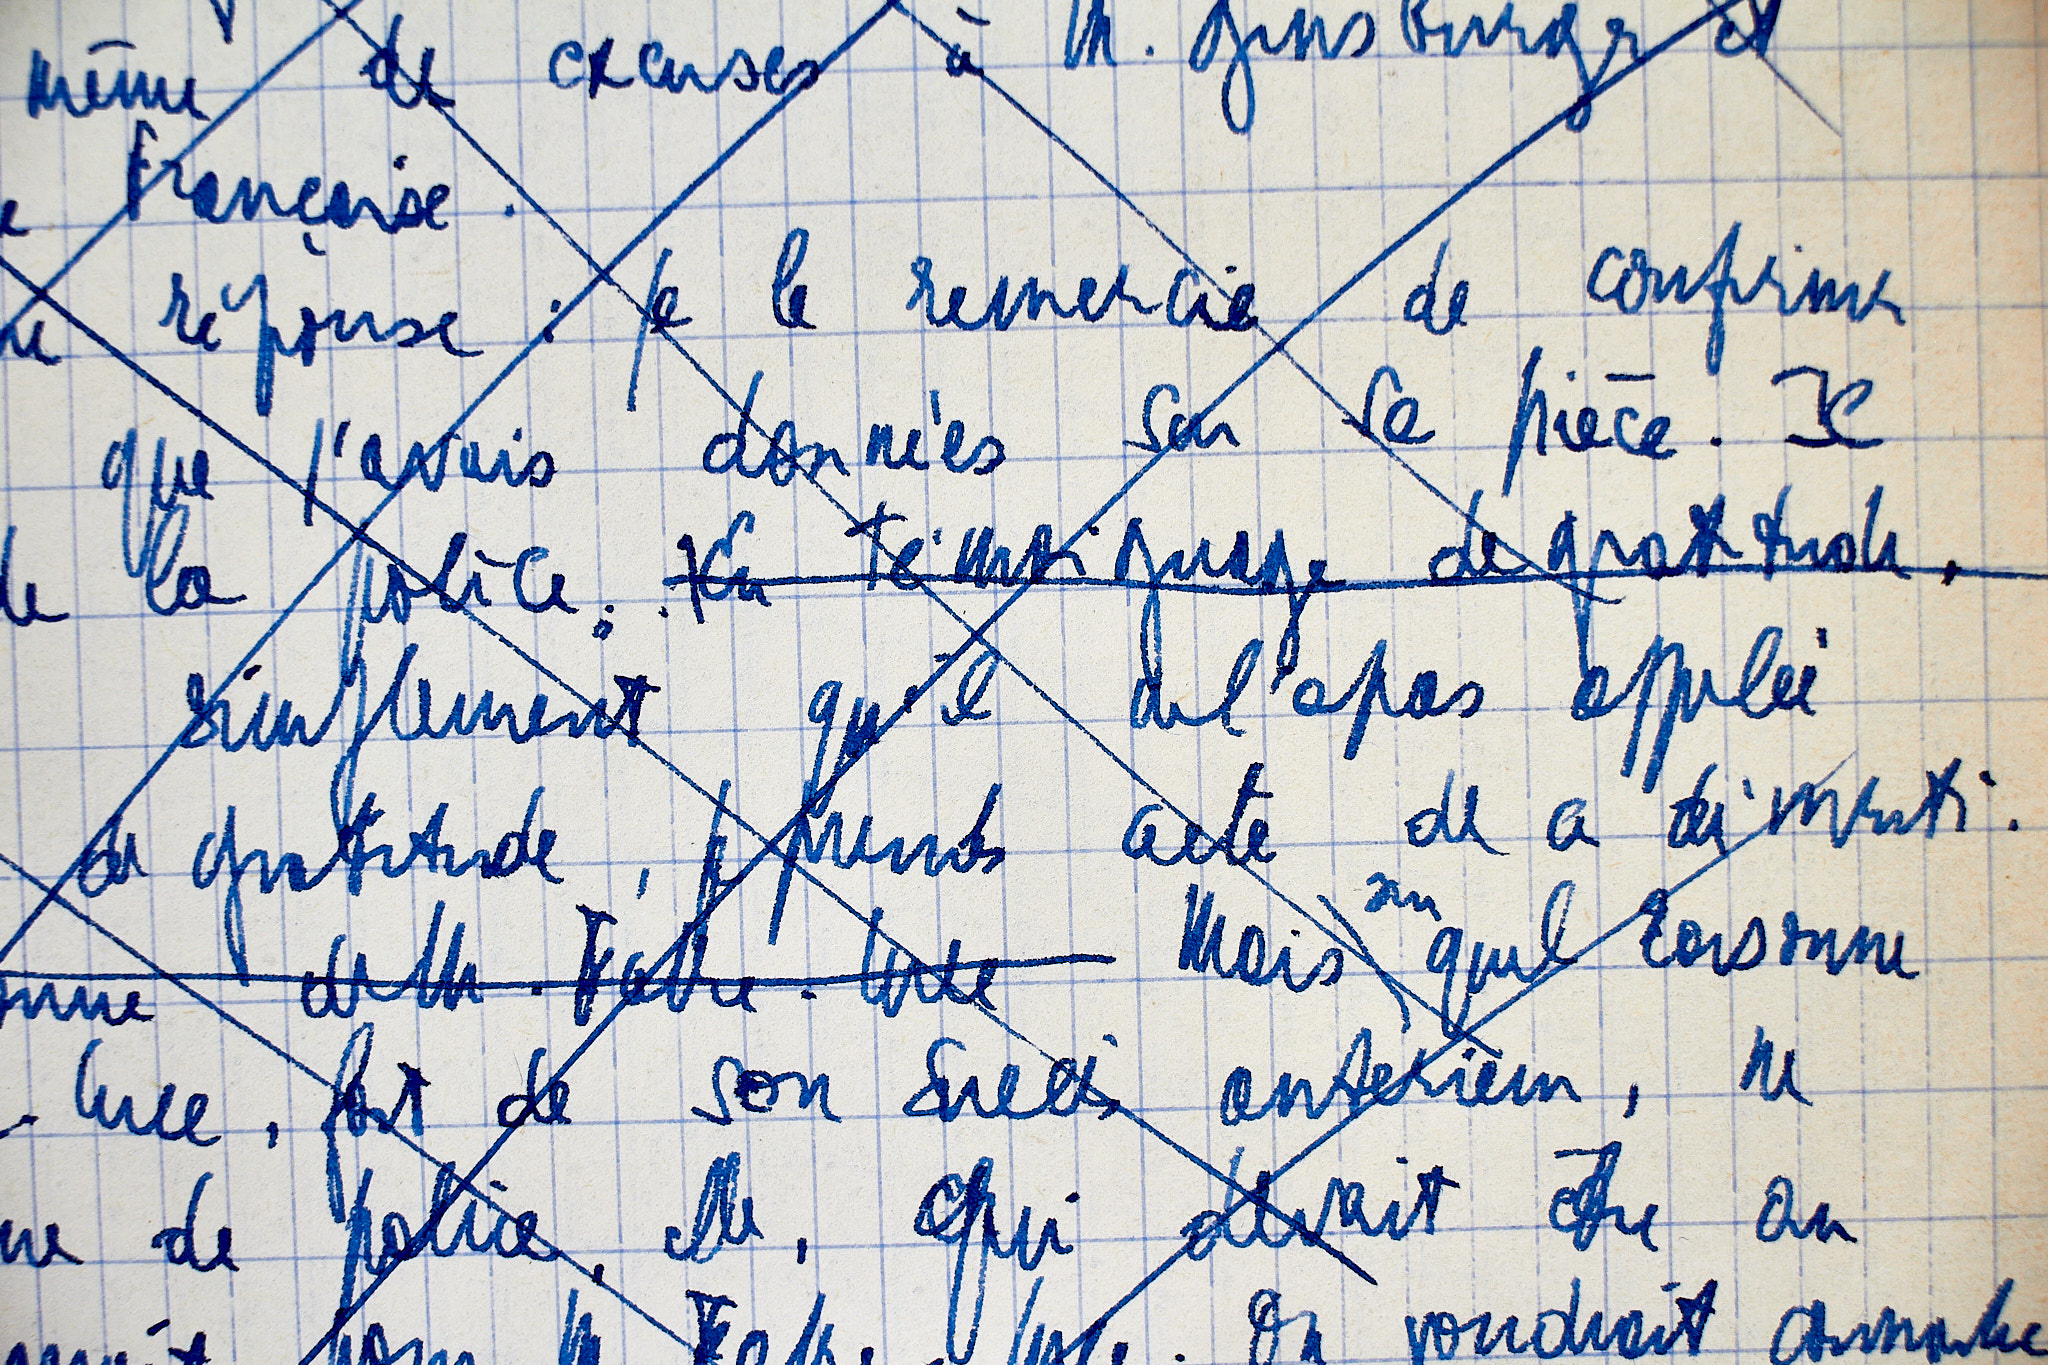 même de excuses à M. Ginsburger et
française.
réponse : je le remercie de confirmer
que j'avais données sur sa pièce. Il
de la police. Un témoignage de gratitude.
simplement qu'il ne l'a pas appelée
de gratitude, je prends acte de ce démenti.
de M. Fabre-Luce Mais, quel
Luce, fort de son succès antérieur, ne
de police, elle, qui devait être au
pour M. Fabre-Luce. On voudrait connaître